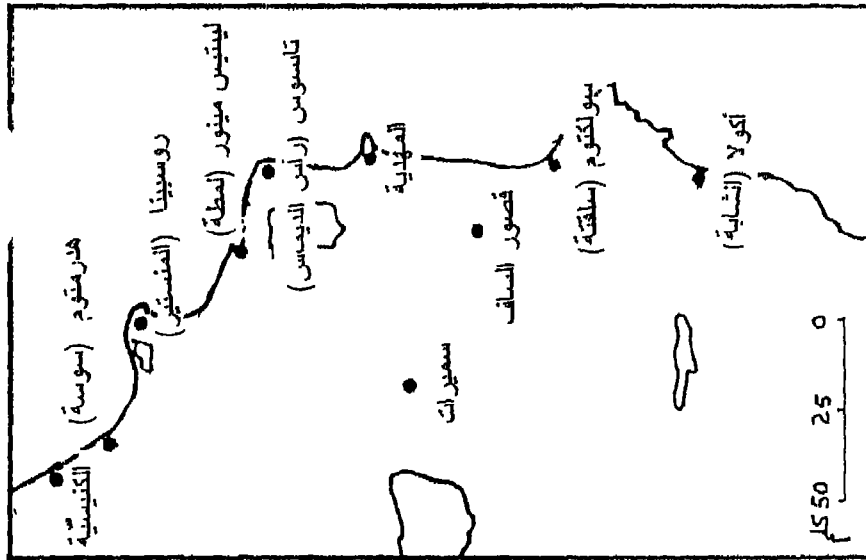 الكنيسيّة
هدرمتوم (سوسة)
روسبينا
(المنستير)
ليبتيس مينور (لمطة)
تابسوس (رأس الديماس)
المهدية
سميرات
قصور الساف
سيولكتوم (سلقتة)
أكولا (الشابة)
كلم 50 25 0